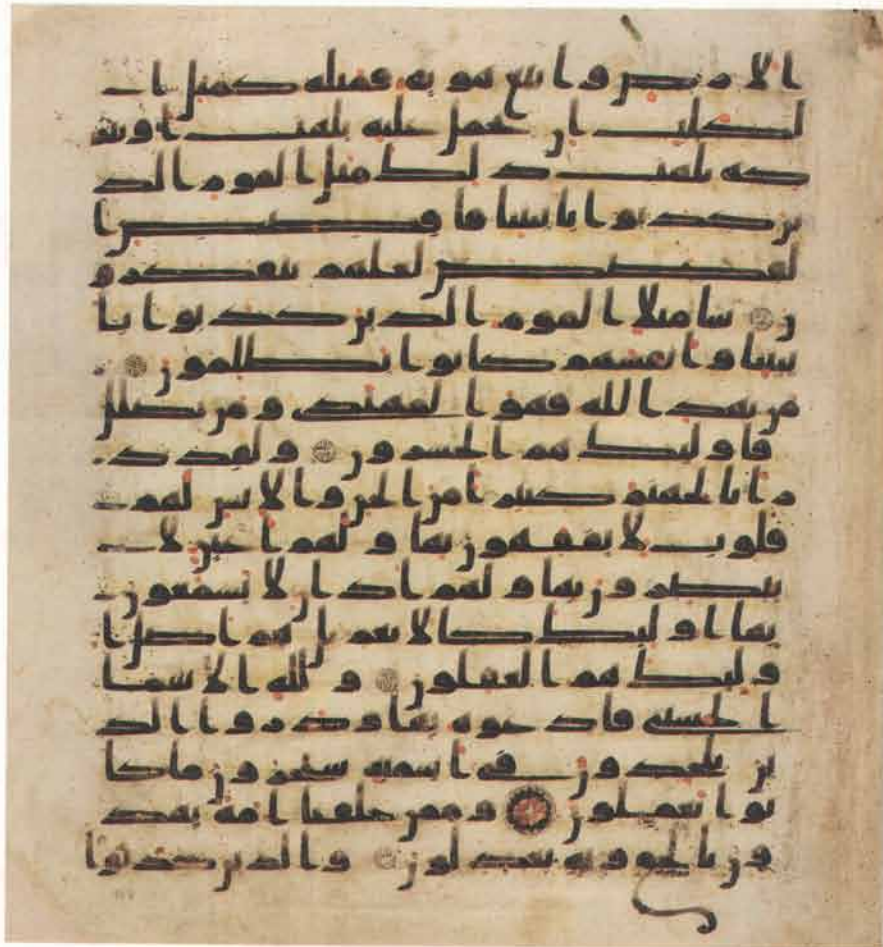 الارض واتبع هويه فمثله كمثل ا
لكلب ان تحمل عليه يلهث او تتر
كه يلهث ذلك مثل القوم الذ
ين كذبوا بايتنا فاقصص ا
لقصص لعلهم يتفكرو
ن سا مثلا القوم الذين كذبوا با
يتنا وانفسهم كانوا يظلمون
من يهد الله فهو المهتدى ومن يضلل
فاولئك هم الخسرون ولقد ذ
رانا لجهنم كثيرا من الجن والانس لهم
قلوب لا يفقهون بها ولهم اعين لا
يبصرون بها ولهم اذان لا يسمعون
بها اولئك كالانعم بل هم اضل ا
ولئك هم الغفلون ولله الاسما
الحسنى فادعوه بها وذروا الذ
ين يلحدون فى اسميه سيجزون ما كا
نوا يعملون وممن خلقنا امة يهد
ون بالحق وبه يعدلون والذين كذبوا